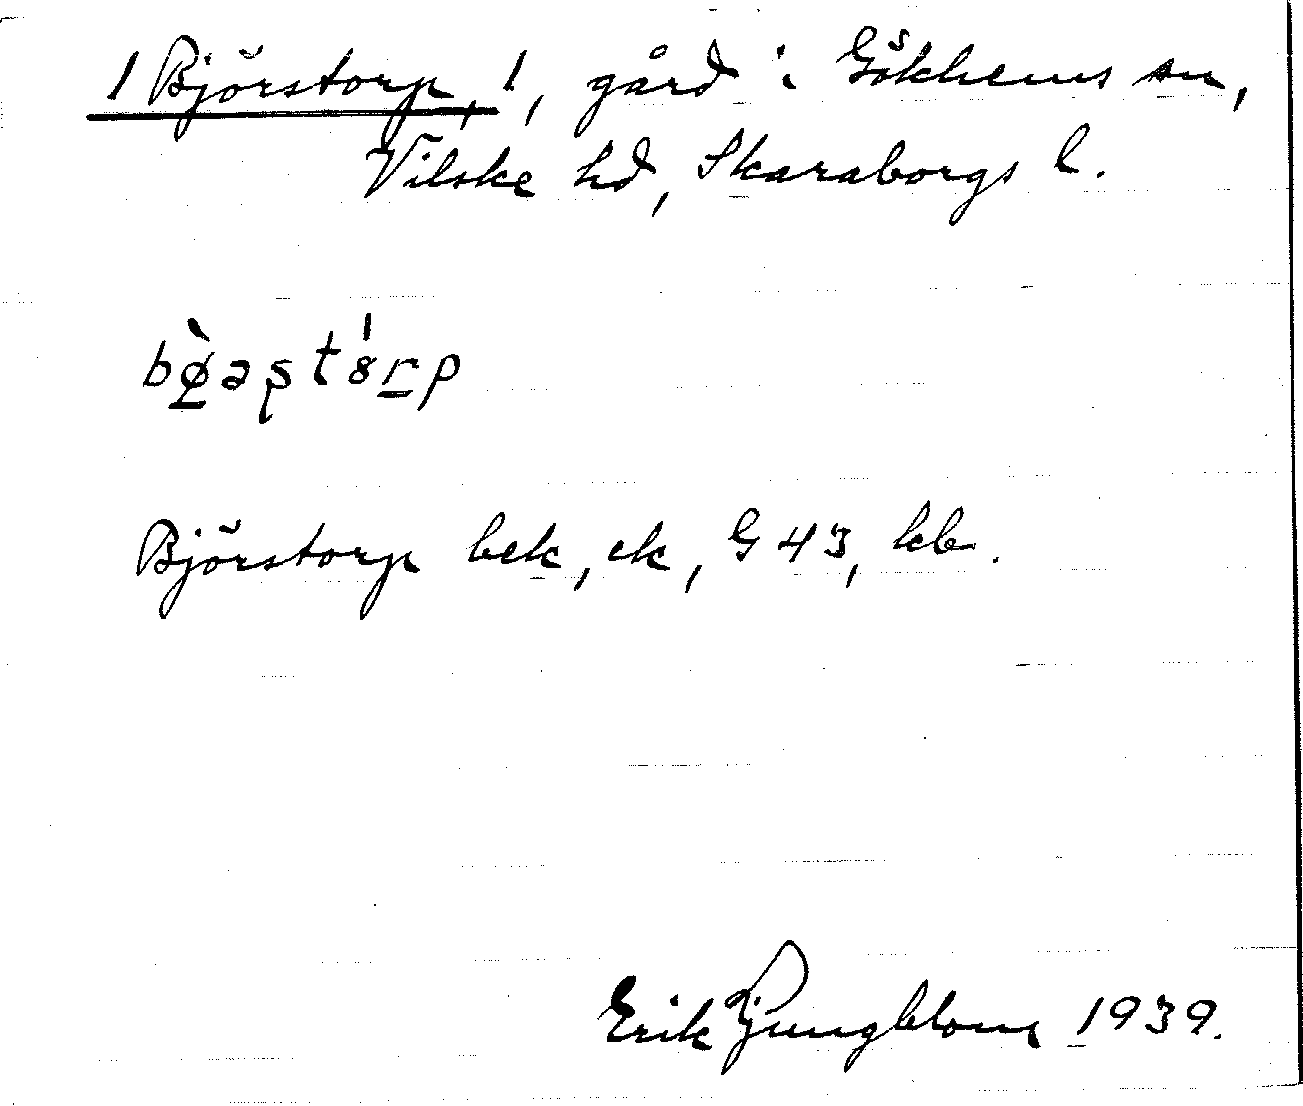 1 Björstorp, 1, gård i Gökhems sn,
Vilske hd, Skaraborgs l.
bø̲̀aʂtȯ́r̲p
Björstorp bek, ek, G 43, kb.
Erik Ljungblom 1939.